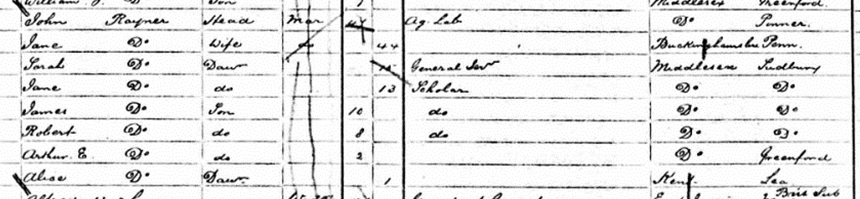 William J. Do Son 1 Middlesex Greenford.
John Rayner Head Mar Ag. Lab Do Pinner.
Jane Do Wife do 44 Buckinghamshire Penn.
Sarah Do Daur 15 General Serv Middlesex Sudbury
Jane Do do 13 Scholar Do Do
James Do Son 10 do Do Do
Robert Do do 8 do Do Do
Arthur. E. Do do 2 Do Greenford
Alice Do Daur. 1 Kent Lea
Brit Sub